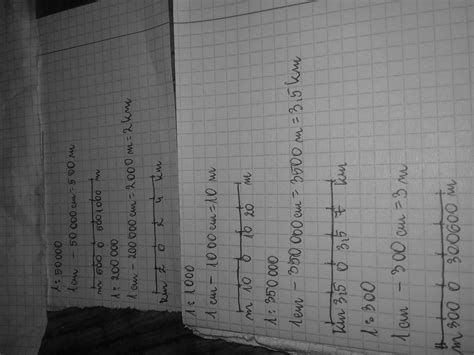 1:50000
1cm - 50000cm = 500m
m 500 0 500 1000 m
1:200000
1cm - 200000cm = 2000m = 2km
km 2 0 2 4 km
1:1000
1cm - 1000cm = 10m
m 10 0 10 20 m
1:350000
1cm - 350000cm = 3500m = 3,5km
km 3,5 0 3,5 7 km
1:300
1cm - 300cm = 3m
m 300 0 300 600 m